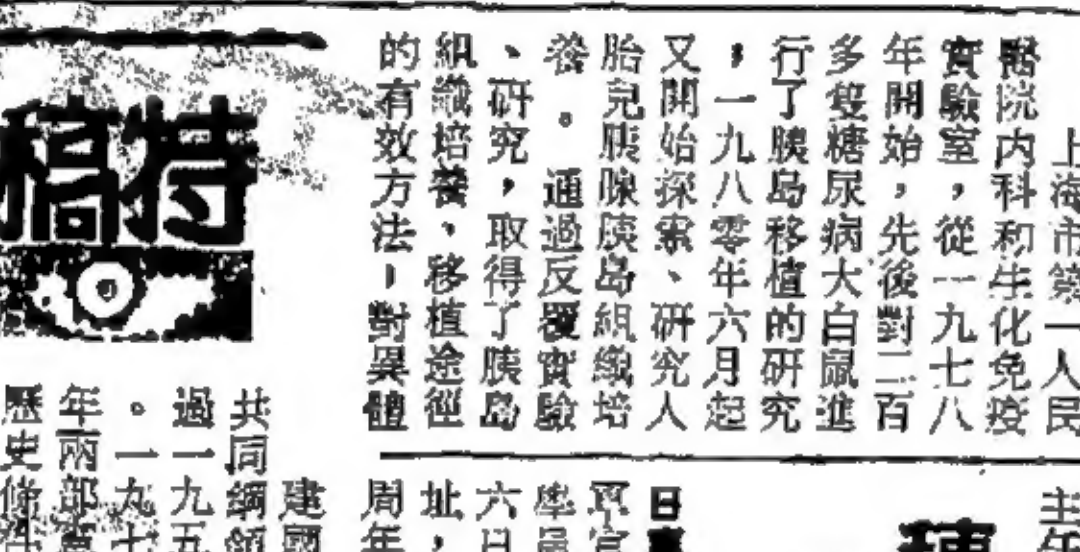 上海市第一人民
醫院内科和生化免疫
實驗室，從一九七八
年開始，先後對二百
多隻糖尿病大白鼠進
行了胰島移植的研究
，一九八零年六月起
又開始探索、研究人
胎兒胰腺胰島組織培
養。通過反覆實驗
、研究，取得了胰島
組織培養、移植途徑
的有效方法－對異體
特稿
共同綱領
過一九五
。一九七
年兩部憲
歷史條件
建國
日
六日
址，
周年